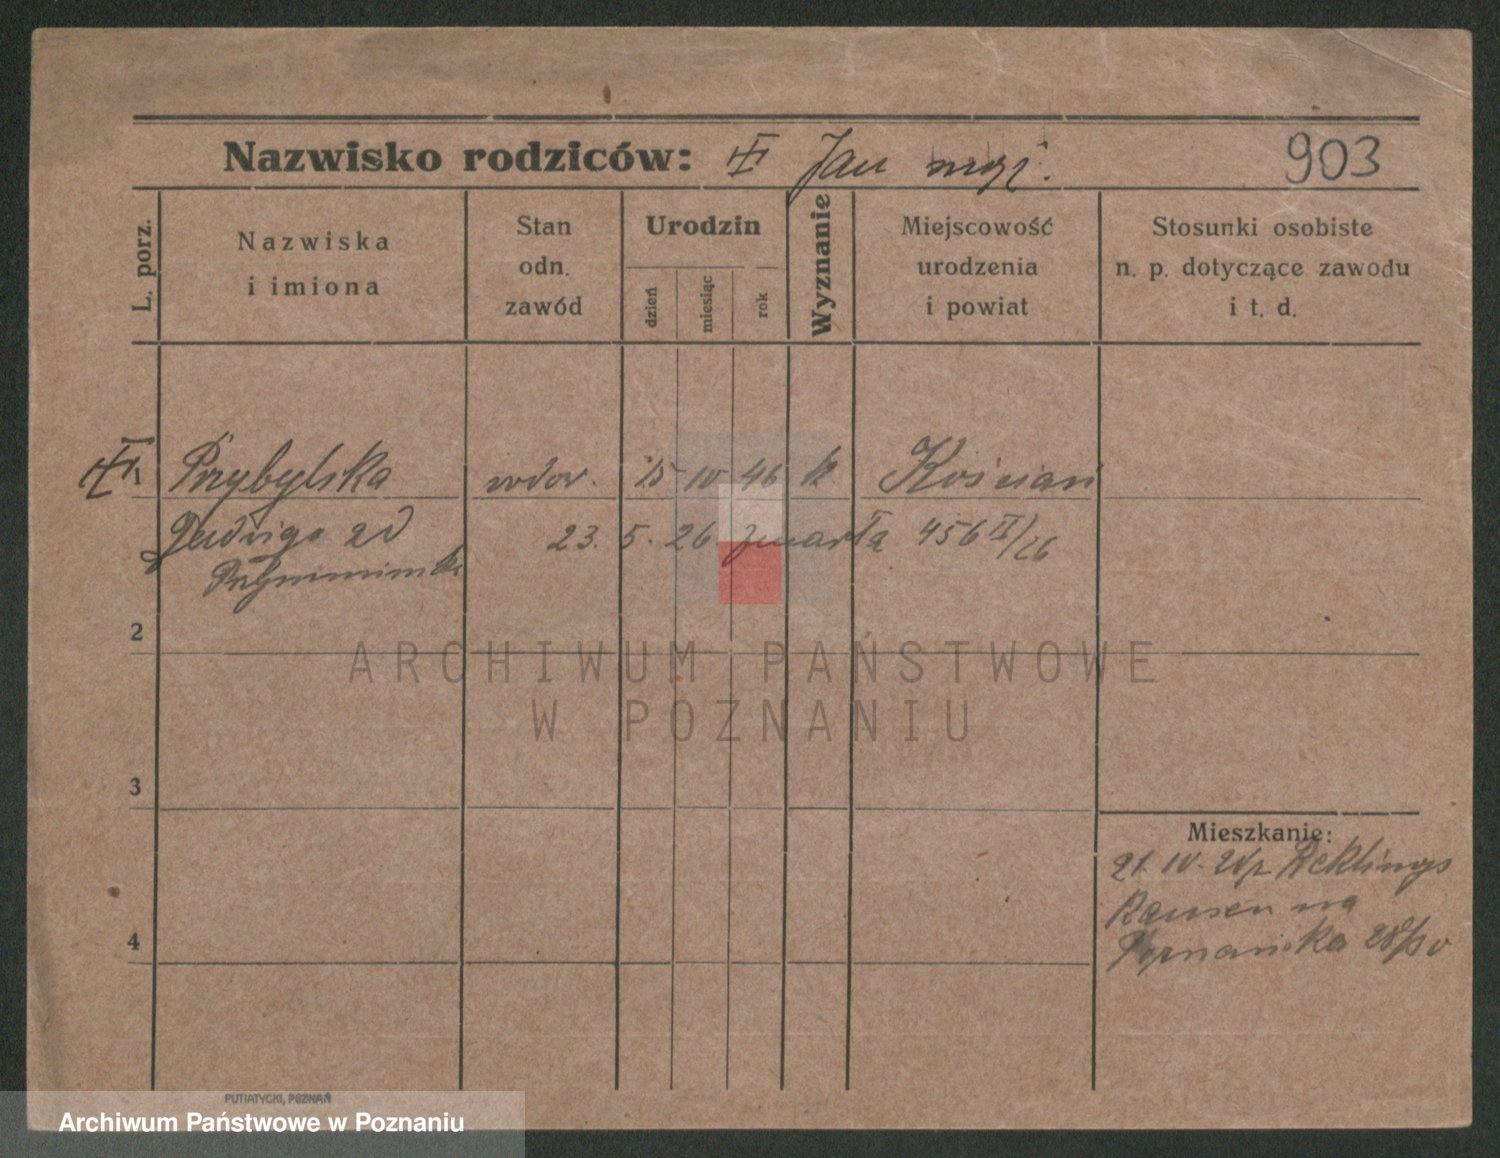 Nazwisko rodziców: Jan 903
L. porz.
Nazwiska
i imiona
Stan
odn.
zawód
Urodzin
dzień
miesiąc
rok
Wyznanie
Miejscowość
urodzenia
i powiat
Stosunki osobiste
n. p. dotyczące zawodu
i t. d.
1 Przybylska wdow. 15 IV 46 k Kościan
Jadwiga zd 23. 5. 26 zmarła 456 II/26
2
3
4
Mieszkanie:
21. IV. Reklings
hausen na
Poznańska
ARCHIWUM PAŃSTWOWE
W POZNANIU
PUTIATYCKI, POZNAŃ
Archiwum Państwowe w Poznaniu